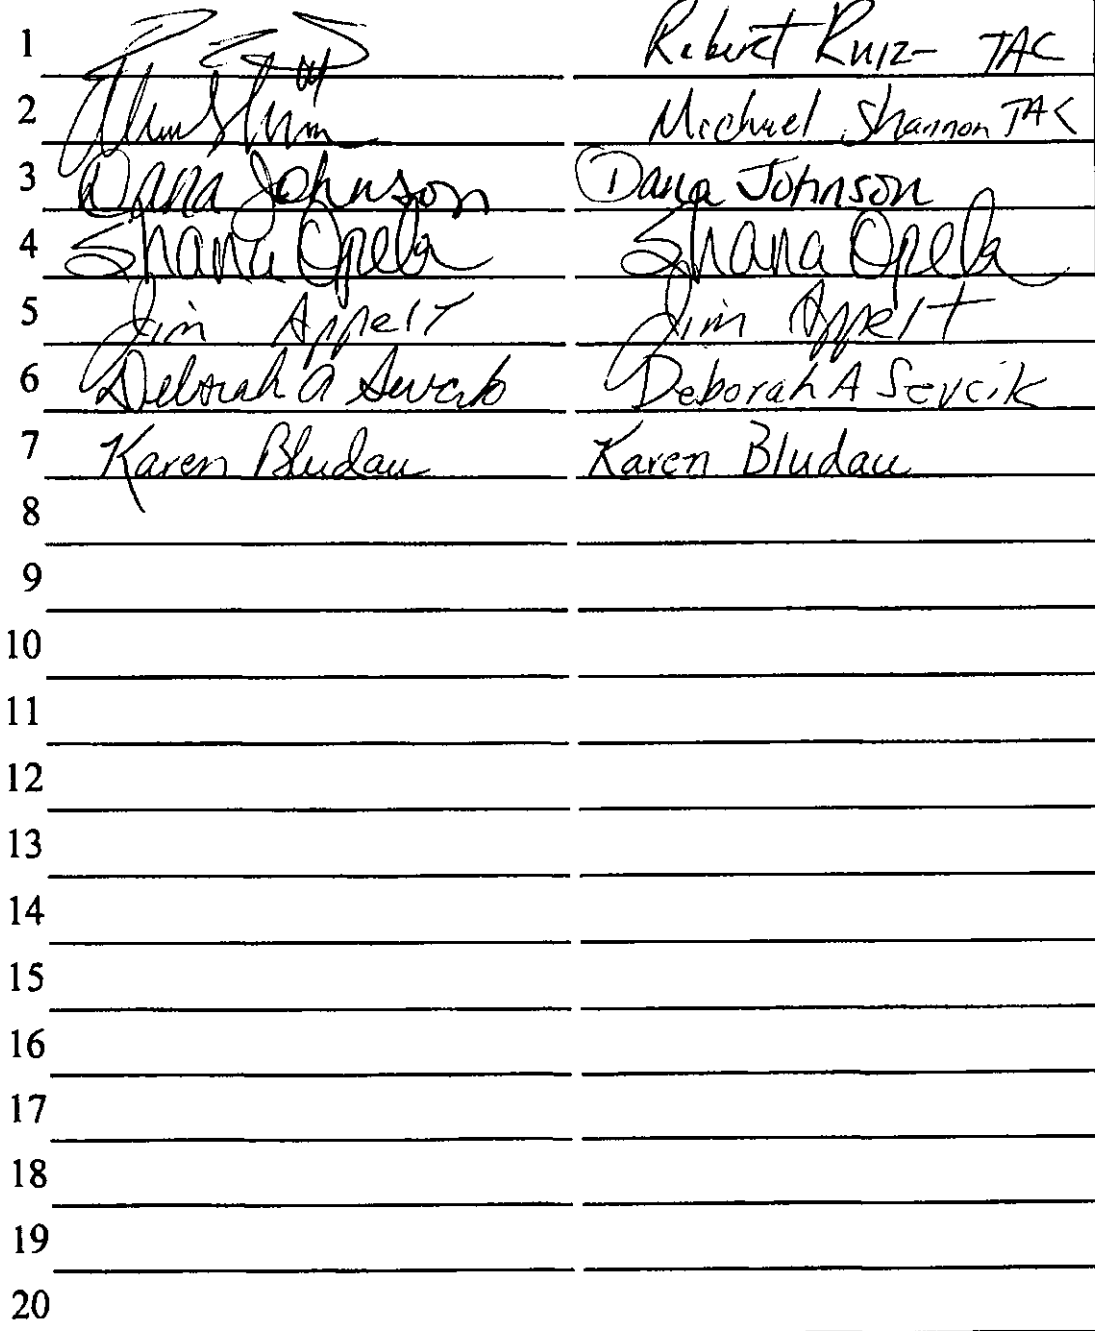 1 Robert Ruiz- TAC
2 Michael Shannon TAC
3 Dana Johnson Dana Johnson
4 Shana Opela Shana Opela
5 Jim Appelt Jim Appelt
6 Deborah A Sevcik Deborah A Sevcik
7 Karen Bludau Karen Bludau
8
9
10
11
12
13
14
15
16
17
18
19
20